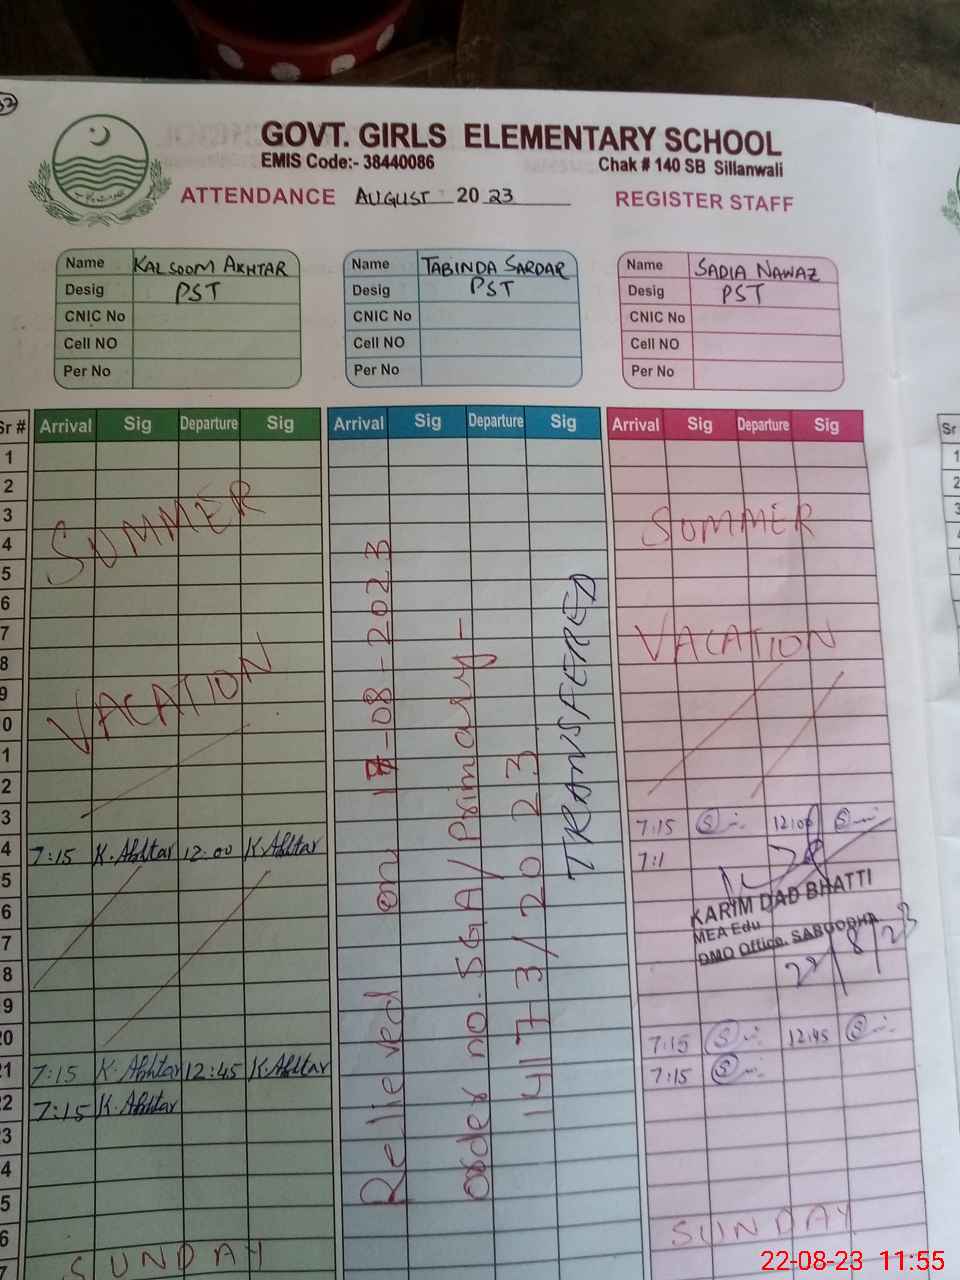 32
GOVT. GIRLS ELEMENTARY SCHOOL
EMIS Code:- 38440086 Chak # 140 SB Sillanwali
ATTENDANCE AUGUST 2023 REGISTER STAFF
Name KALSOOM AKHTAR Name TABINDA SARDAR Name SADIA NAWAZ
Desig PST Desig PST Desig PST
CNIC No CNIC No CNIC No
Cell NO Cell NO Cell NO
Per No Per No Per No
Sr # Arrival Sig Departure Sig Arrival Sig Departure Sig Arrival Sig Departure Sig Sr
1 1
2 2
3 3
4
5
6
7
8
9
0
1
2
3 7:15 12:00
4 7:15 K.Akhtar 12:00 K.Akhtar 7:1
5
6
7
8
9
20 7:15 12:45
21 7:15 K.Akhtar 12:45 K.Akhtar 7:15
22 7:15 K.Akhtar
3
4
5
6
7
SUMMER
VACATION
SUNDAY
Relieved on 17-08-2023
order no. SGA/Primary-
14173/2023
TRANSFERED
SUMMER
VACATION
KARIM DAD BHATTI
MEA Edu
DMO Office, SARGODHA
22/8/23
SUNDAY
22-08-23 11:55